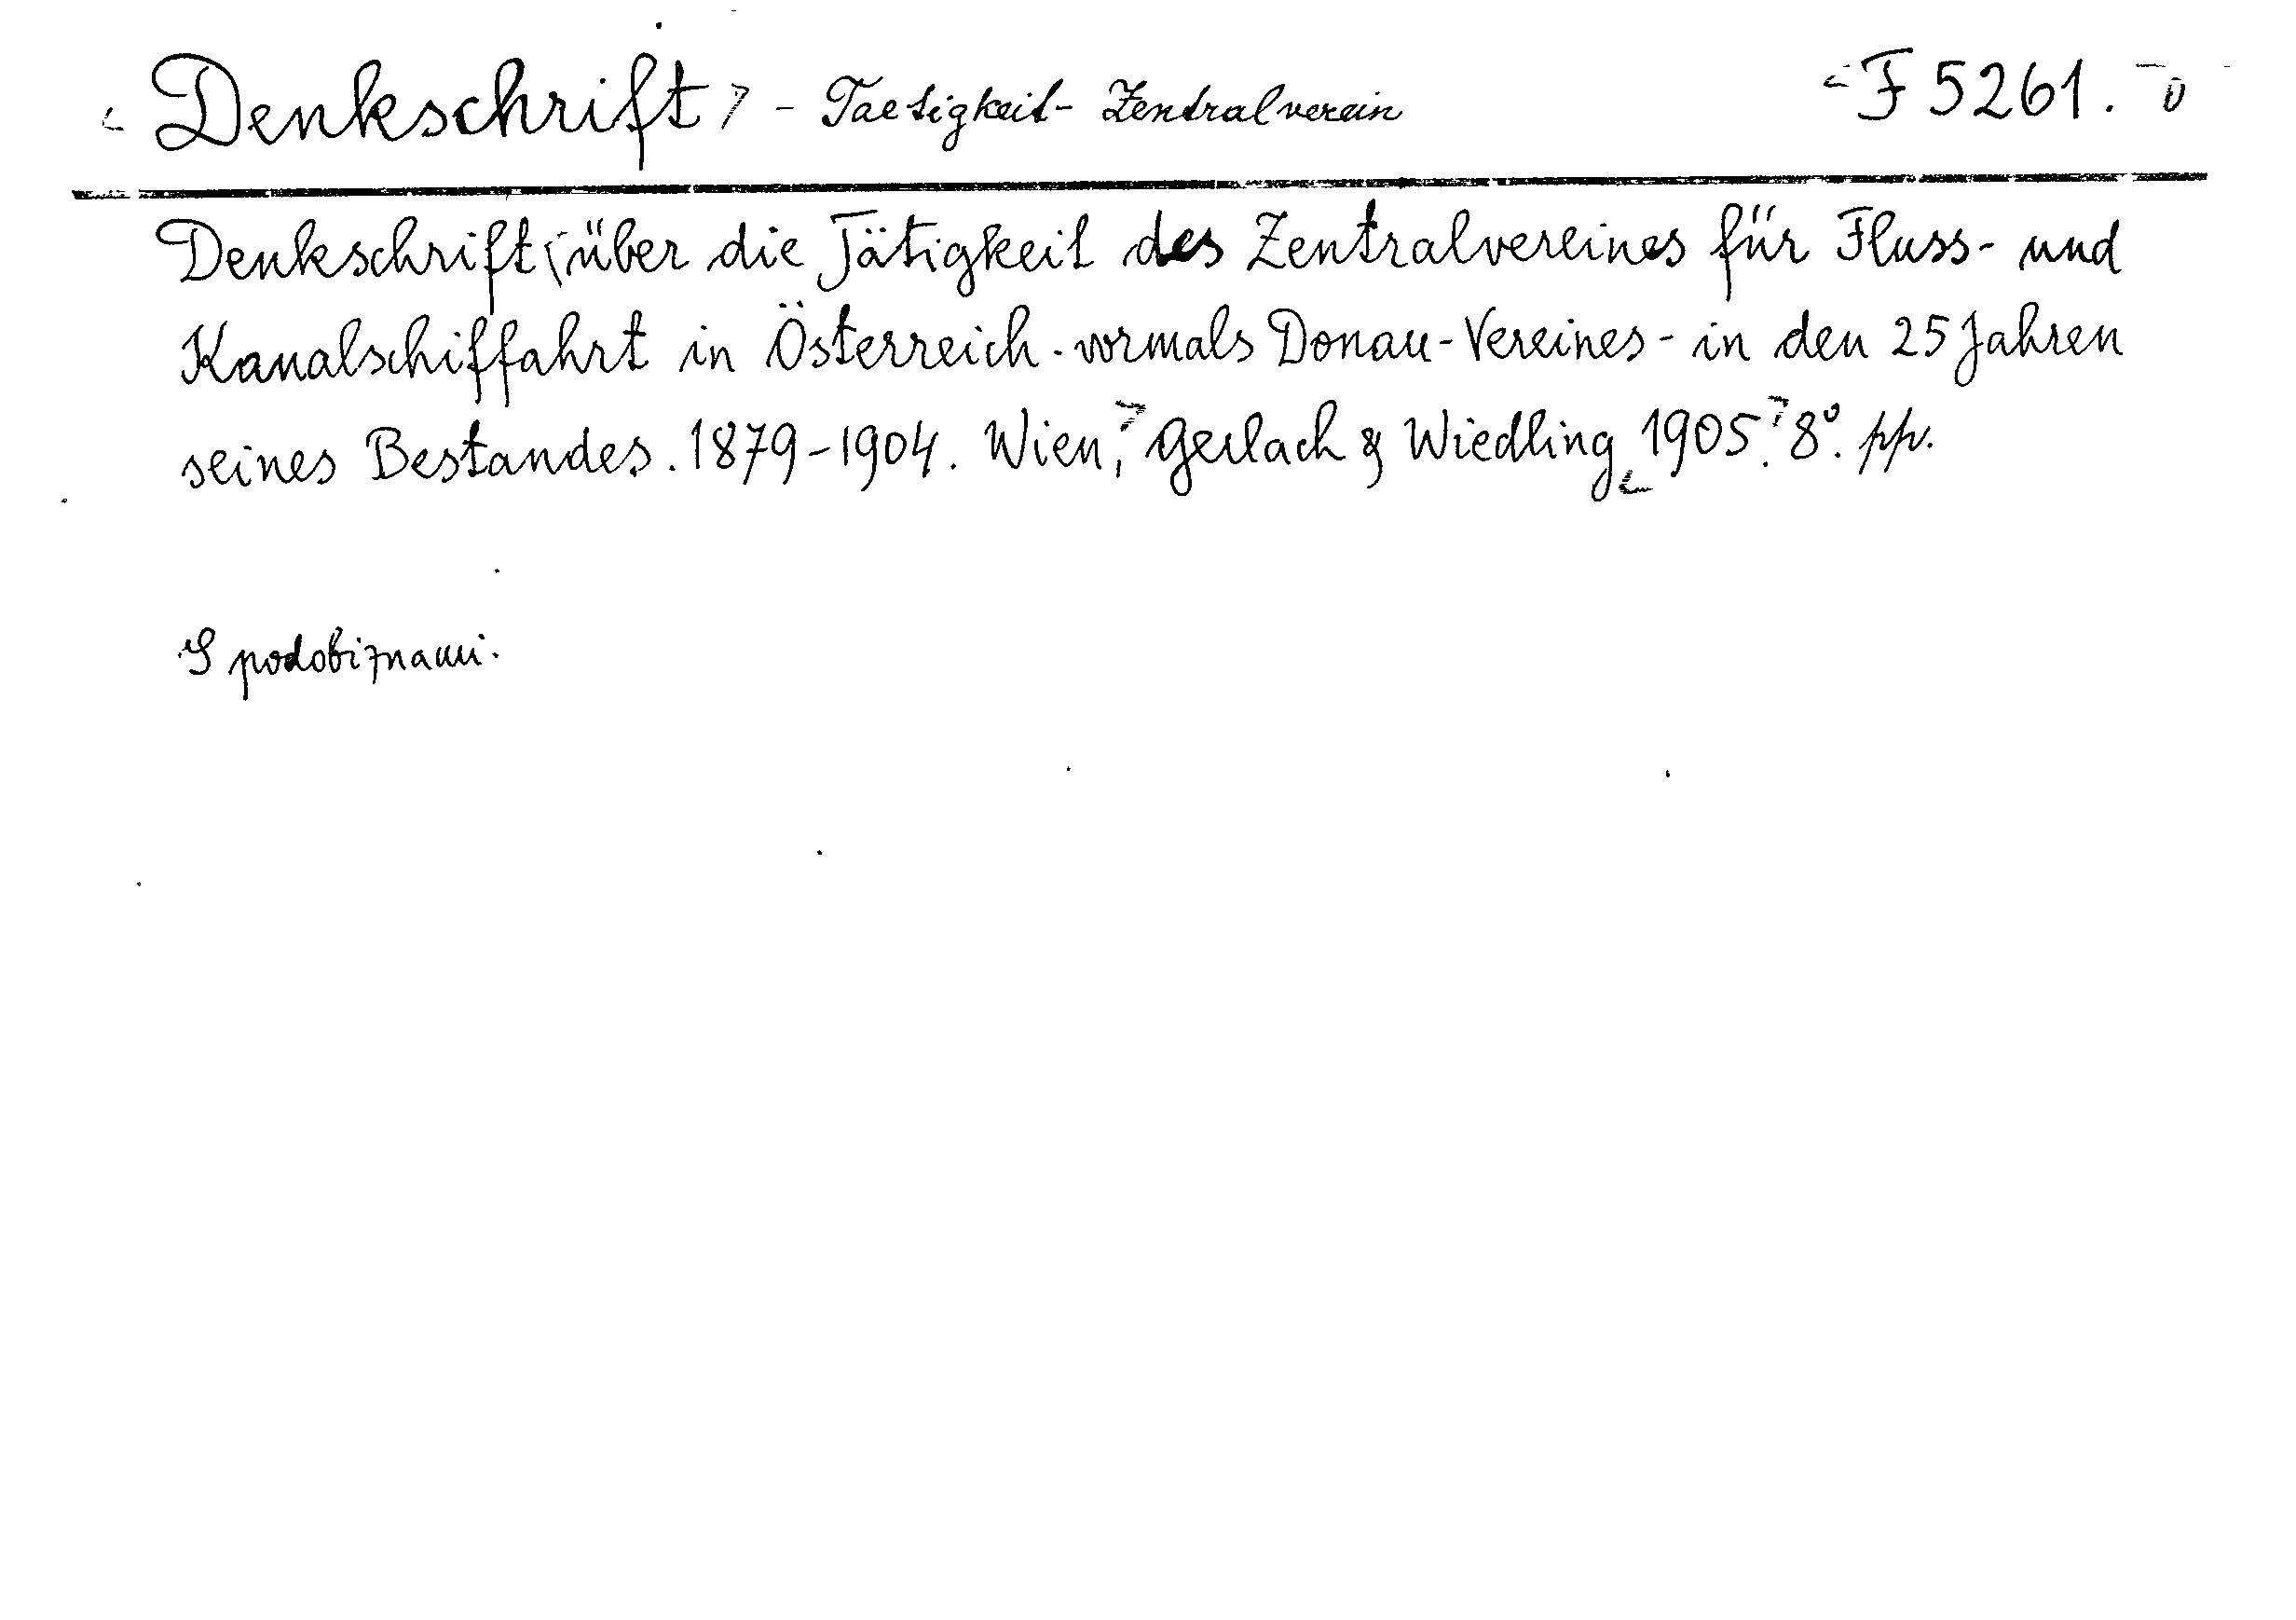 Denkschrift - Taetigkeit - Zentralverein F 5261.
Denkschrift über die Tätigkeit des Zentralvereines für Fluss- und
Kanalschiffahrt in Österreich - vormals Donau-Vereines - in den 25 Jahren
seines Bestandes. 1879-1904. Wien, Gerlach & Wiedling 1905. 8º. pp.
S podobiznami.